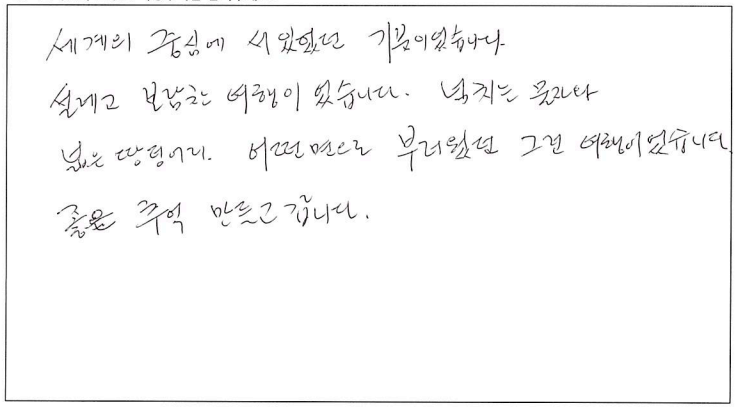 세계의 중심에 서 있었던 기분이었습니다.
설레고 보람찬 여행이었습니다. 넘치는 물자와
넓은 땅덩어리. 어떤 면으로 부러웠던 그런 여행이었습니다.
좋은 추억 만들고 갑니다.